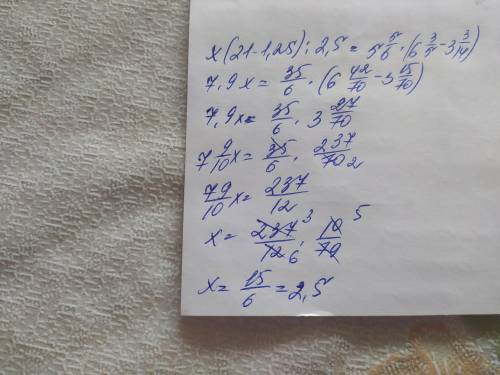 x(21-1,25):2,5=5 5/6·(6 3/5-3 3/14)
7,9x=35/6·(6 42/70-3 15/70)
7,9x=35/6·3 27/70
7 9/10x=35/6·237/70 2
79/10x=237/12
x=237/12 3 6·10/79 5
x=15/6=2,5